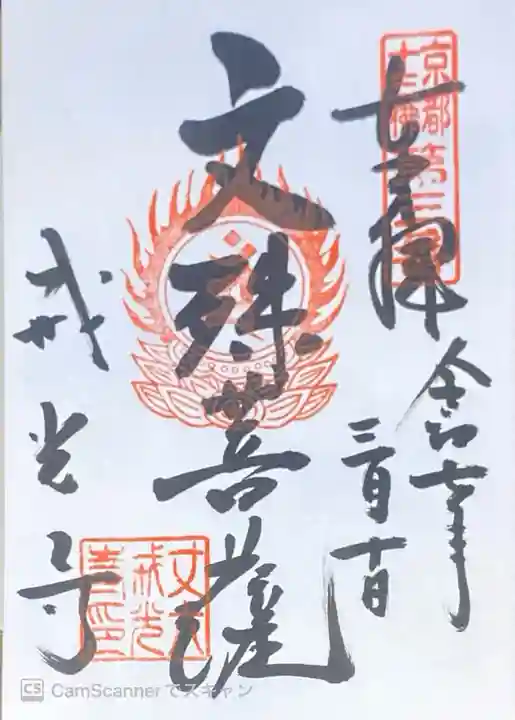 奉拝
令和七年
三月十日
文殊菩薩
戒光寺
京都
十三佛
第三番
丈六
戒光
寺印
CS CamScanner でスキャン